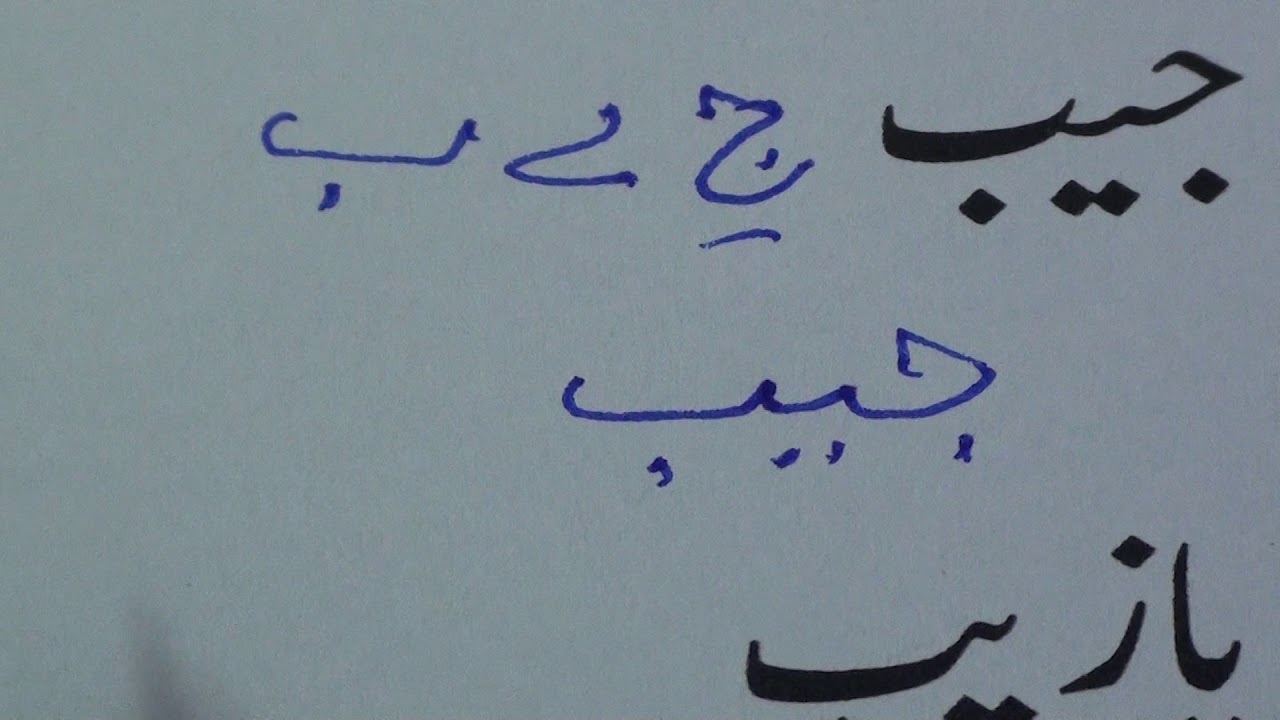 جیب جِ ے ب
جیب
پازیب